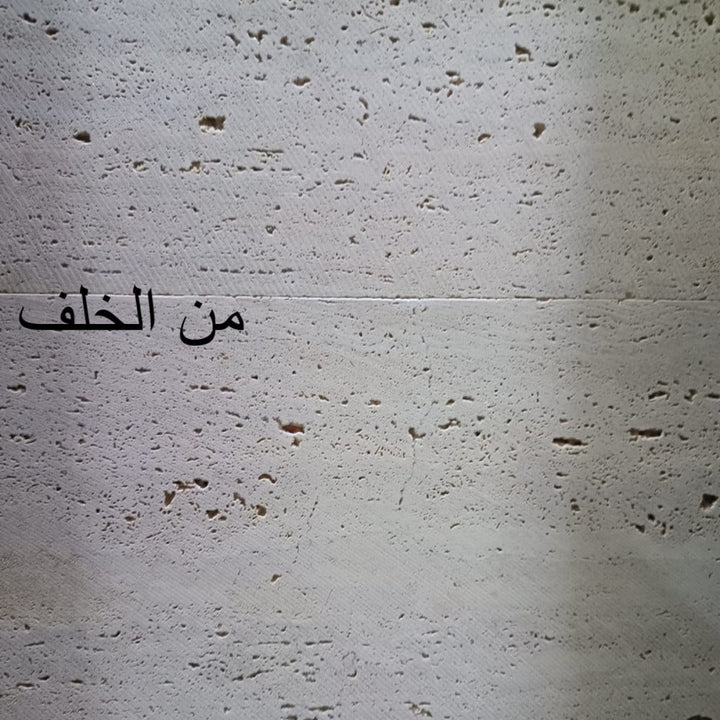 من الخلف